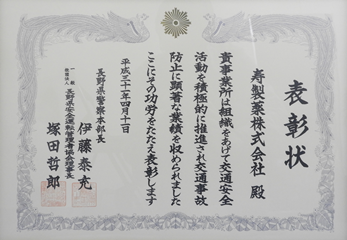 表彰状
寿製薬株式会社 殿
貴事業所は組織をあげて交通安全
活動を積極的に推進され交通事故
防止に顕著な業績を収められました
ここにその功労をたたえ表彰します
平成三十一年四月十日
長野県警察本部長
伊藤泰充
一般社団法人
長野県安全運転管理者協会理事長
塚田哲郎